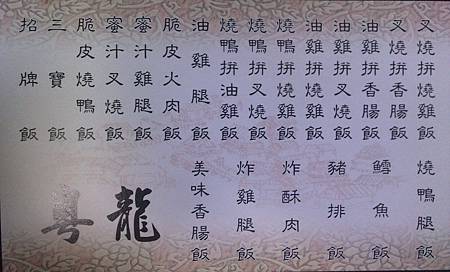 叉燒拼燒雞飯
叉燒拼香腸飯
油雞拼香腸飯
油雞拼叉燒飯
油雞拼燒雞飯
燒鴨拼燒雞飯
燒鴨拼叉燒飯
燒鴨拼油雞飯
油雞腿飯
脆皮火肉飯
蜜汁雞腿飯
蜜汁叉燒飯
脆皮燒鴨飯
三寶飯
招牌飯
燒鴨腿飯
鱈魚飯
豬排飯
炸酥肉飯
炸雞腿飯
美味香腸飯
粵龍